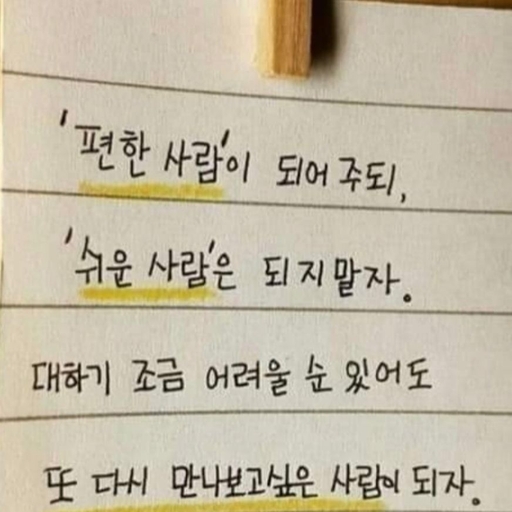 '편한 사람'이 되어 주되,
'쉬운 사람'은 되지말자.
대하기 조금 어려울 순 있어도
또 다시 만나보고싶은 사람이 되자.